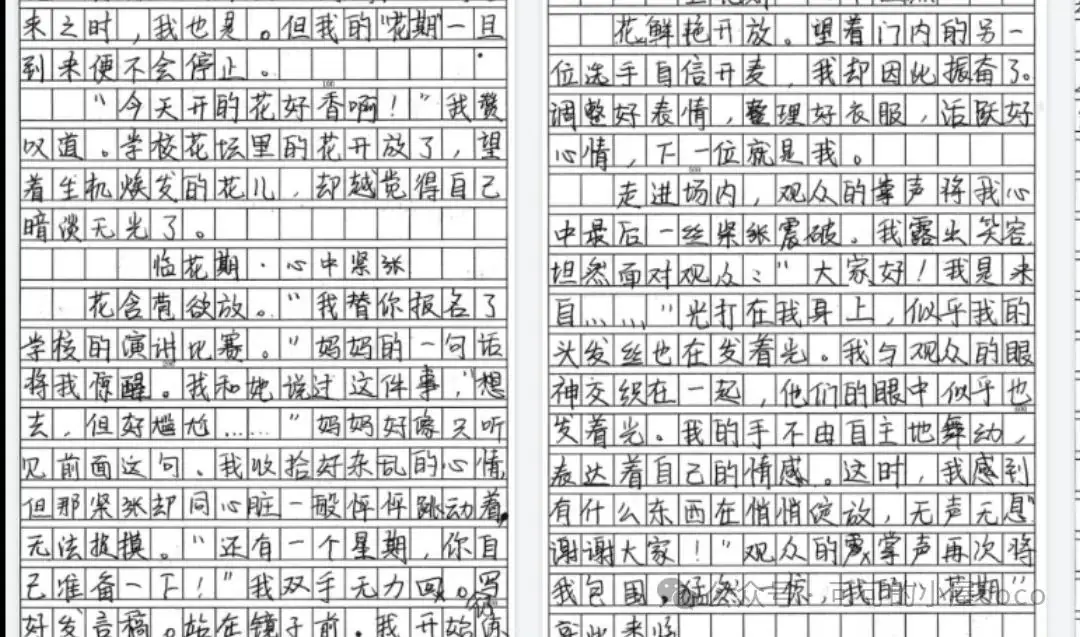 来之时，我也是。但我的“花期”一旦
到来便不会停止。
100
“今天开的花好香啊！”我赞
叹道。学校花坛里的花开放了，望
着生机焕发的花儿，却越觉得自己
暗淡无光了。
临花期·心中紧张
花含苞欲放。“我替你报名了
学校的演讲比赛。”妈妈的一句话
将我惊醒。我和她说过这件事，“想
去，但好尴尬……”妈妈好像只听
见前面这句。我收拾好杂乱的心情，
但那紧张却同心脏一般怦怦跳动着，
无法捉摸。“还有一个星期，你自
己准备一下！”我双手无力回。写
好发言稿，站在镜子前，我开始练
花鲜艳开放。望着门内的另一
位选手自信开麦，我却因此振奋了。
调整好表情，整理好衣服，活跃好
心情，下一位就是我。
500
走进场内，观众的掌声将我心
中最后一丝紧张震破。我露出笑容，
坦然面对观众：“大家好！我是来
自……”光打在我身上，似乎我的
头发丝也在发着光。我与观众的眼
神交织在一起，他们的眼中似乎也
600
发着光。我的手不由自主地舞动，
表达着自己的情感。这时，我感到
有什么东西在悄悄绽放，无声无息“
谢谢大家！”观众的掌声再次将
我包围，猛然一惊，我的“花期”
就此来临